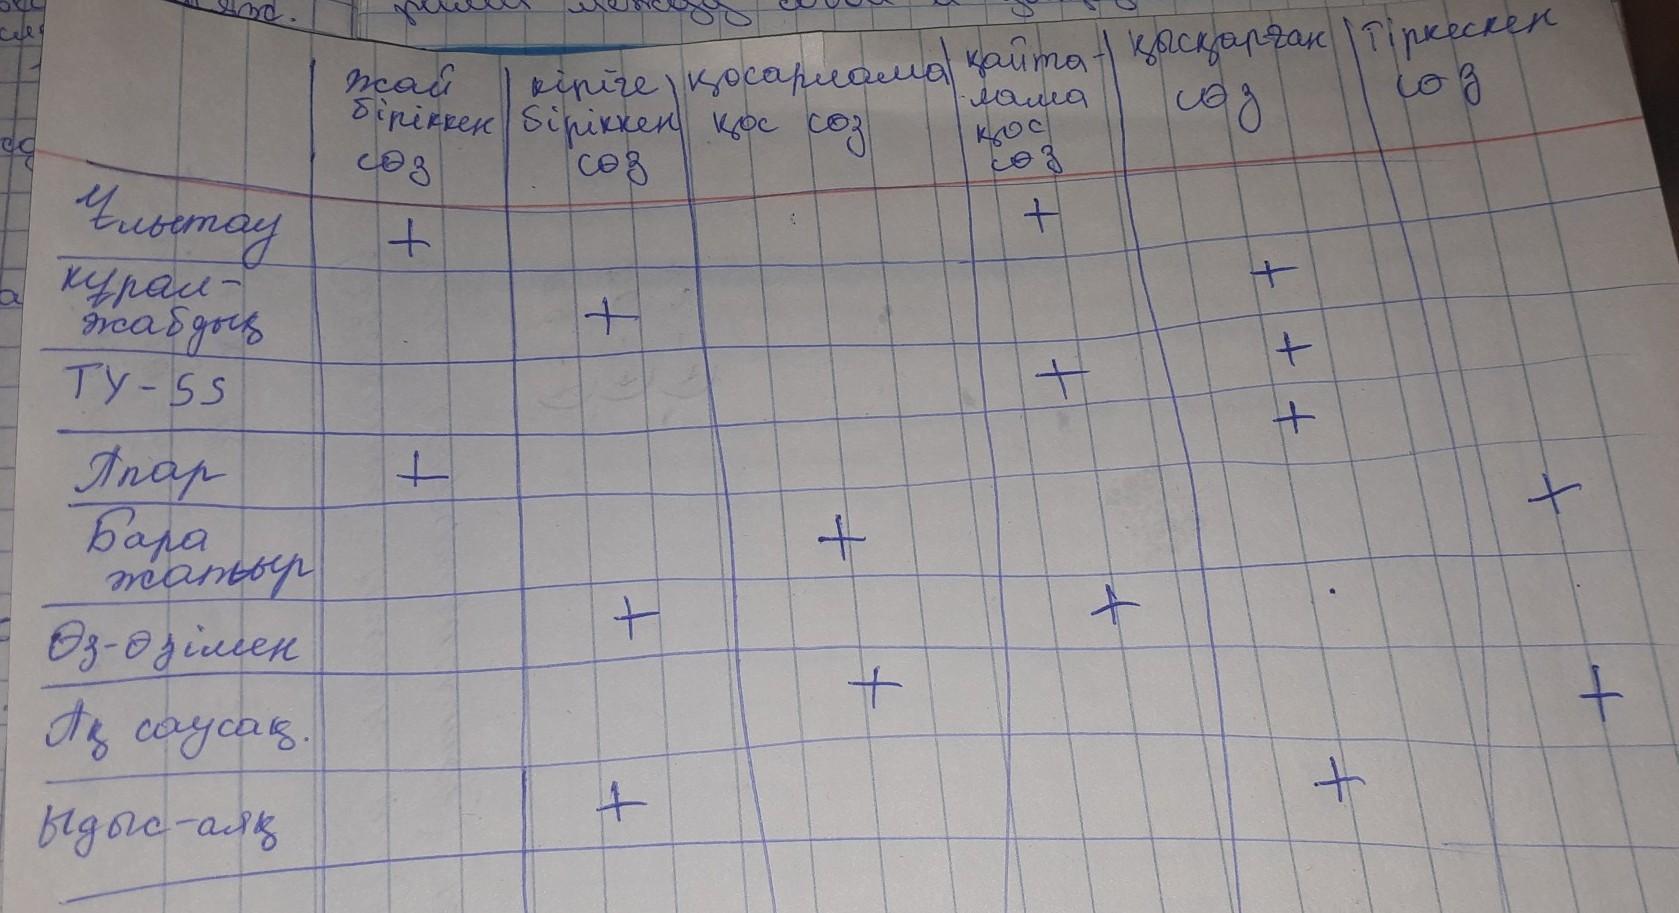 жай
біріккен
сөз
кіріге
біріккен
сөз
қосарлама
қос сөз
қайта-
лама
қос
сөз
қысқарған
сөз
тіркескен
сөз
Ұлытау + +
құрал-
жабдық + +
ТУ-SS + +
Апар + +
Бара
жатыр + +
Өз-өзімен + +
Ақ саусақ. + +
Ыдыс-аяқ + +